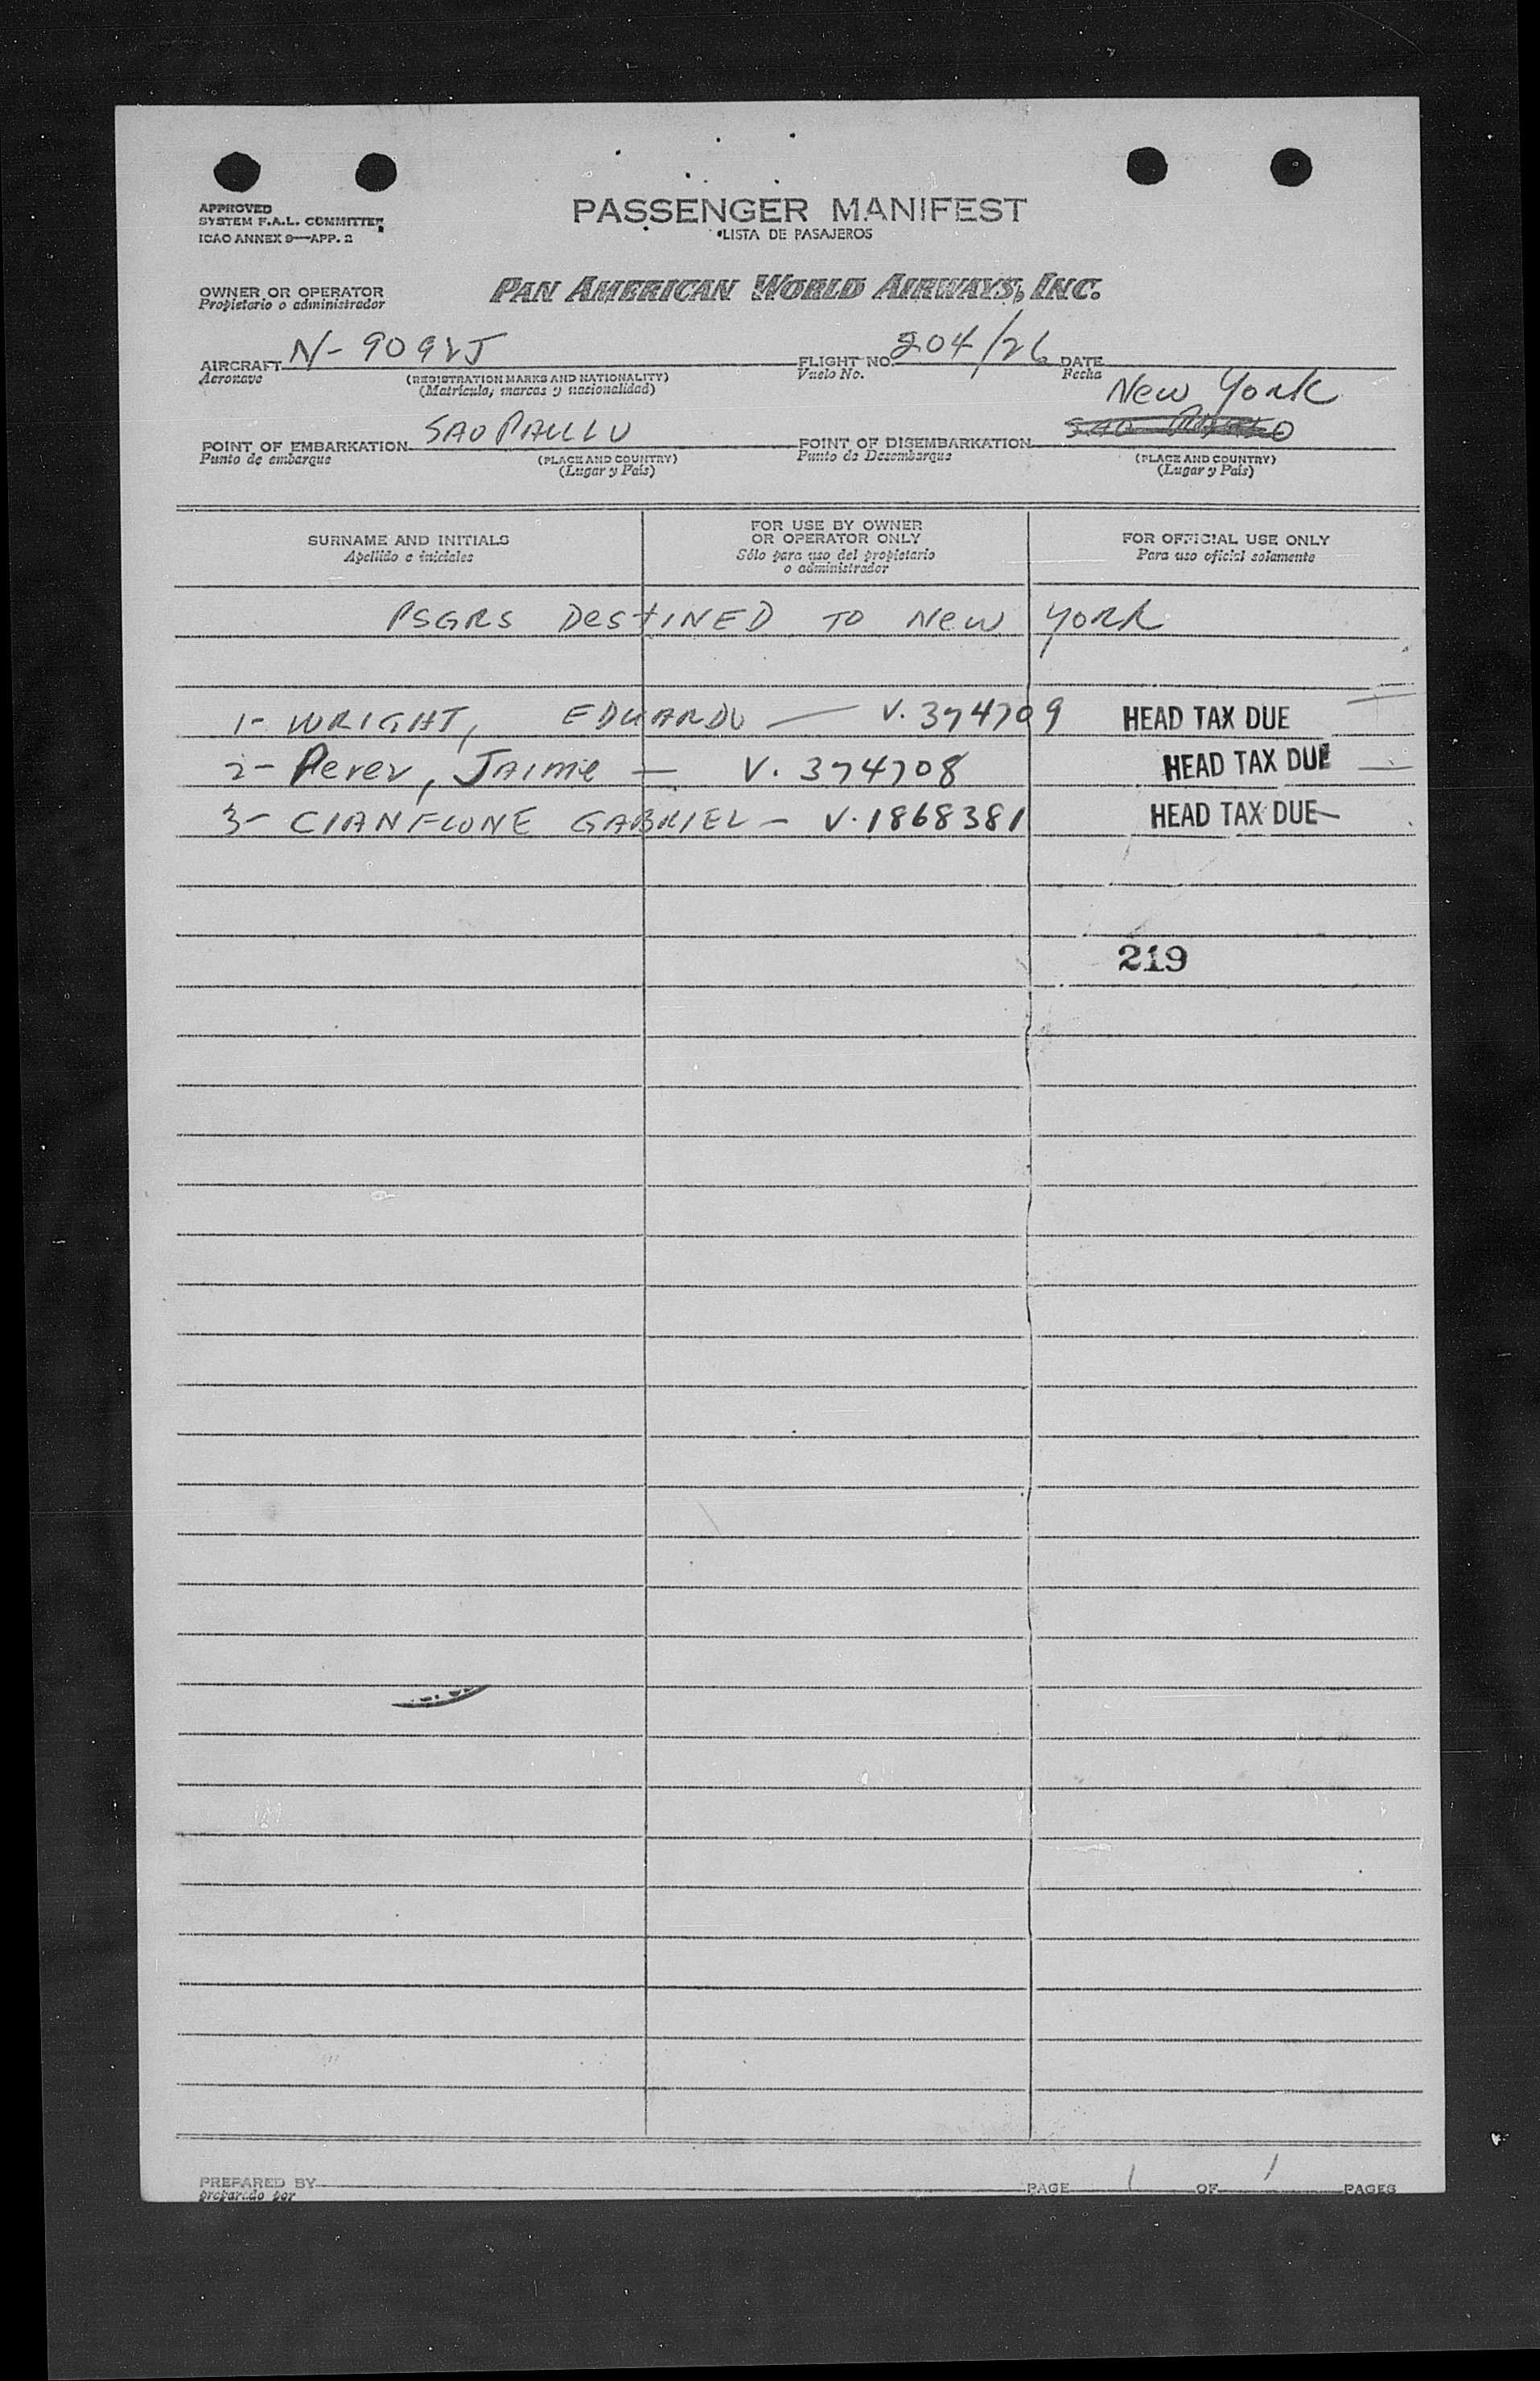 APPROVED
SYSTEM F.A.L. COMMITTEE
ICAO ANNEX 9—APP. 2
PASSENGER MANIFEST
LISTA DE PASAJEROS
OWNER OR OPERATOR
Propietario o administrador
PAN AMERICAN WORLD AIRWAYS, INC.
AIRCRAFT N-9092J FLIGHT NO. 204/26 DATE
Aeronave (REGISTRATION MARKS AND NATIONALITY) Vuelo No. Fecha
(Matrícula, marcas y nacionalidad)
New York
POINT OF EMBARKATION SAO PAULLO POINT OF DISEMBARKATION SAO PAULO
Punto de embarque (PLACE AND COUNTRY) Punto de Desembarque (PLACE AND COUNTRY)
(Lugar y País) (Lugar y País)
SURNAME AND INITIALS
Apellido e iniciales
FOR USE BY OWNER
OR OPERATOR ONLY
Sólo para uso del propietario
o administrador
FOR OFFICIAL USE ONLY
Para uso oficial solamente
PSGRS DestINED TO New YORK
1- WRIGHT, EDUARDO — V. 374709 HEAD TAX DUE
2- Perez, JAIME — V. 374708 HEAD TAX DUE
3- CIANFLONE GABRIEL - V. 1868381 HEAD TAX DUE
219
PREPARED BY PAGE 1 OF 1 PAGES
preparado por